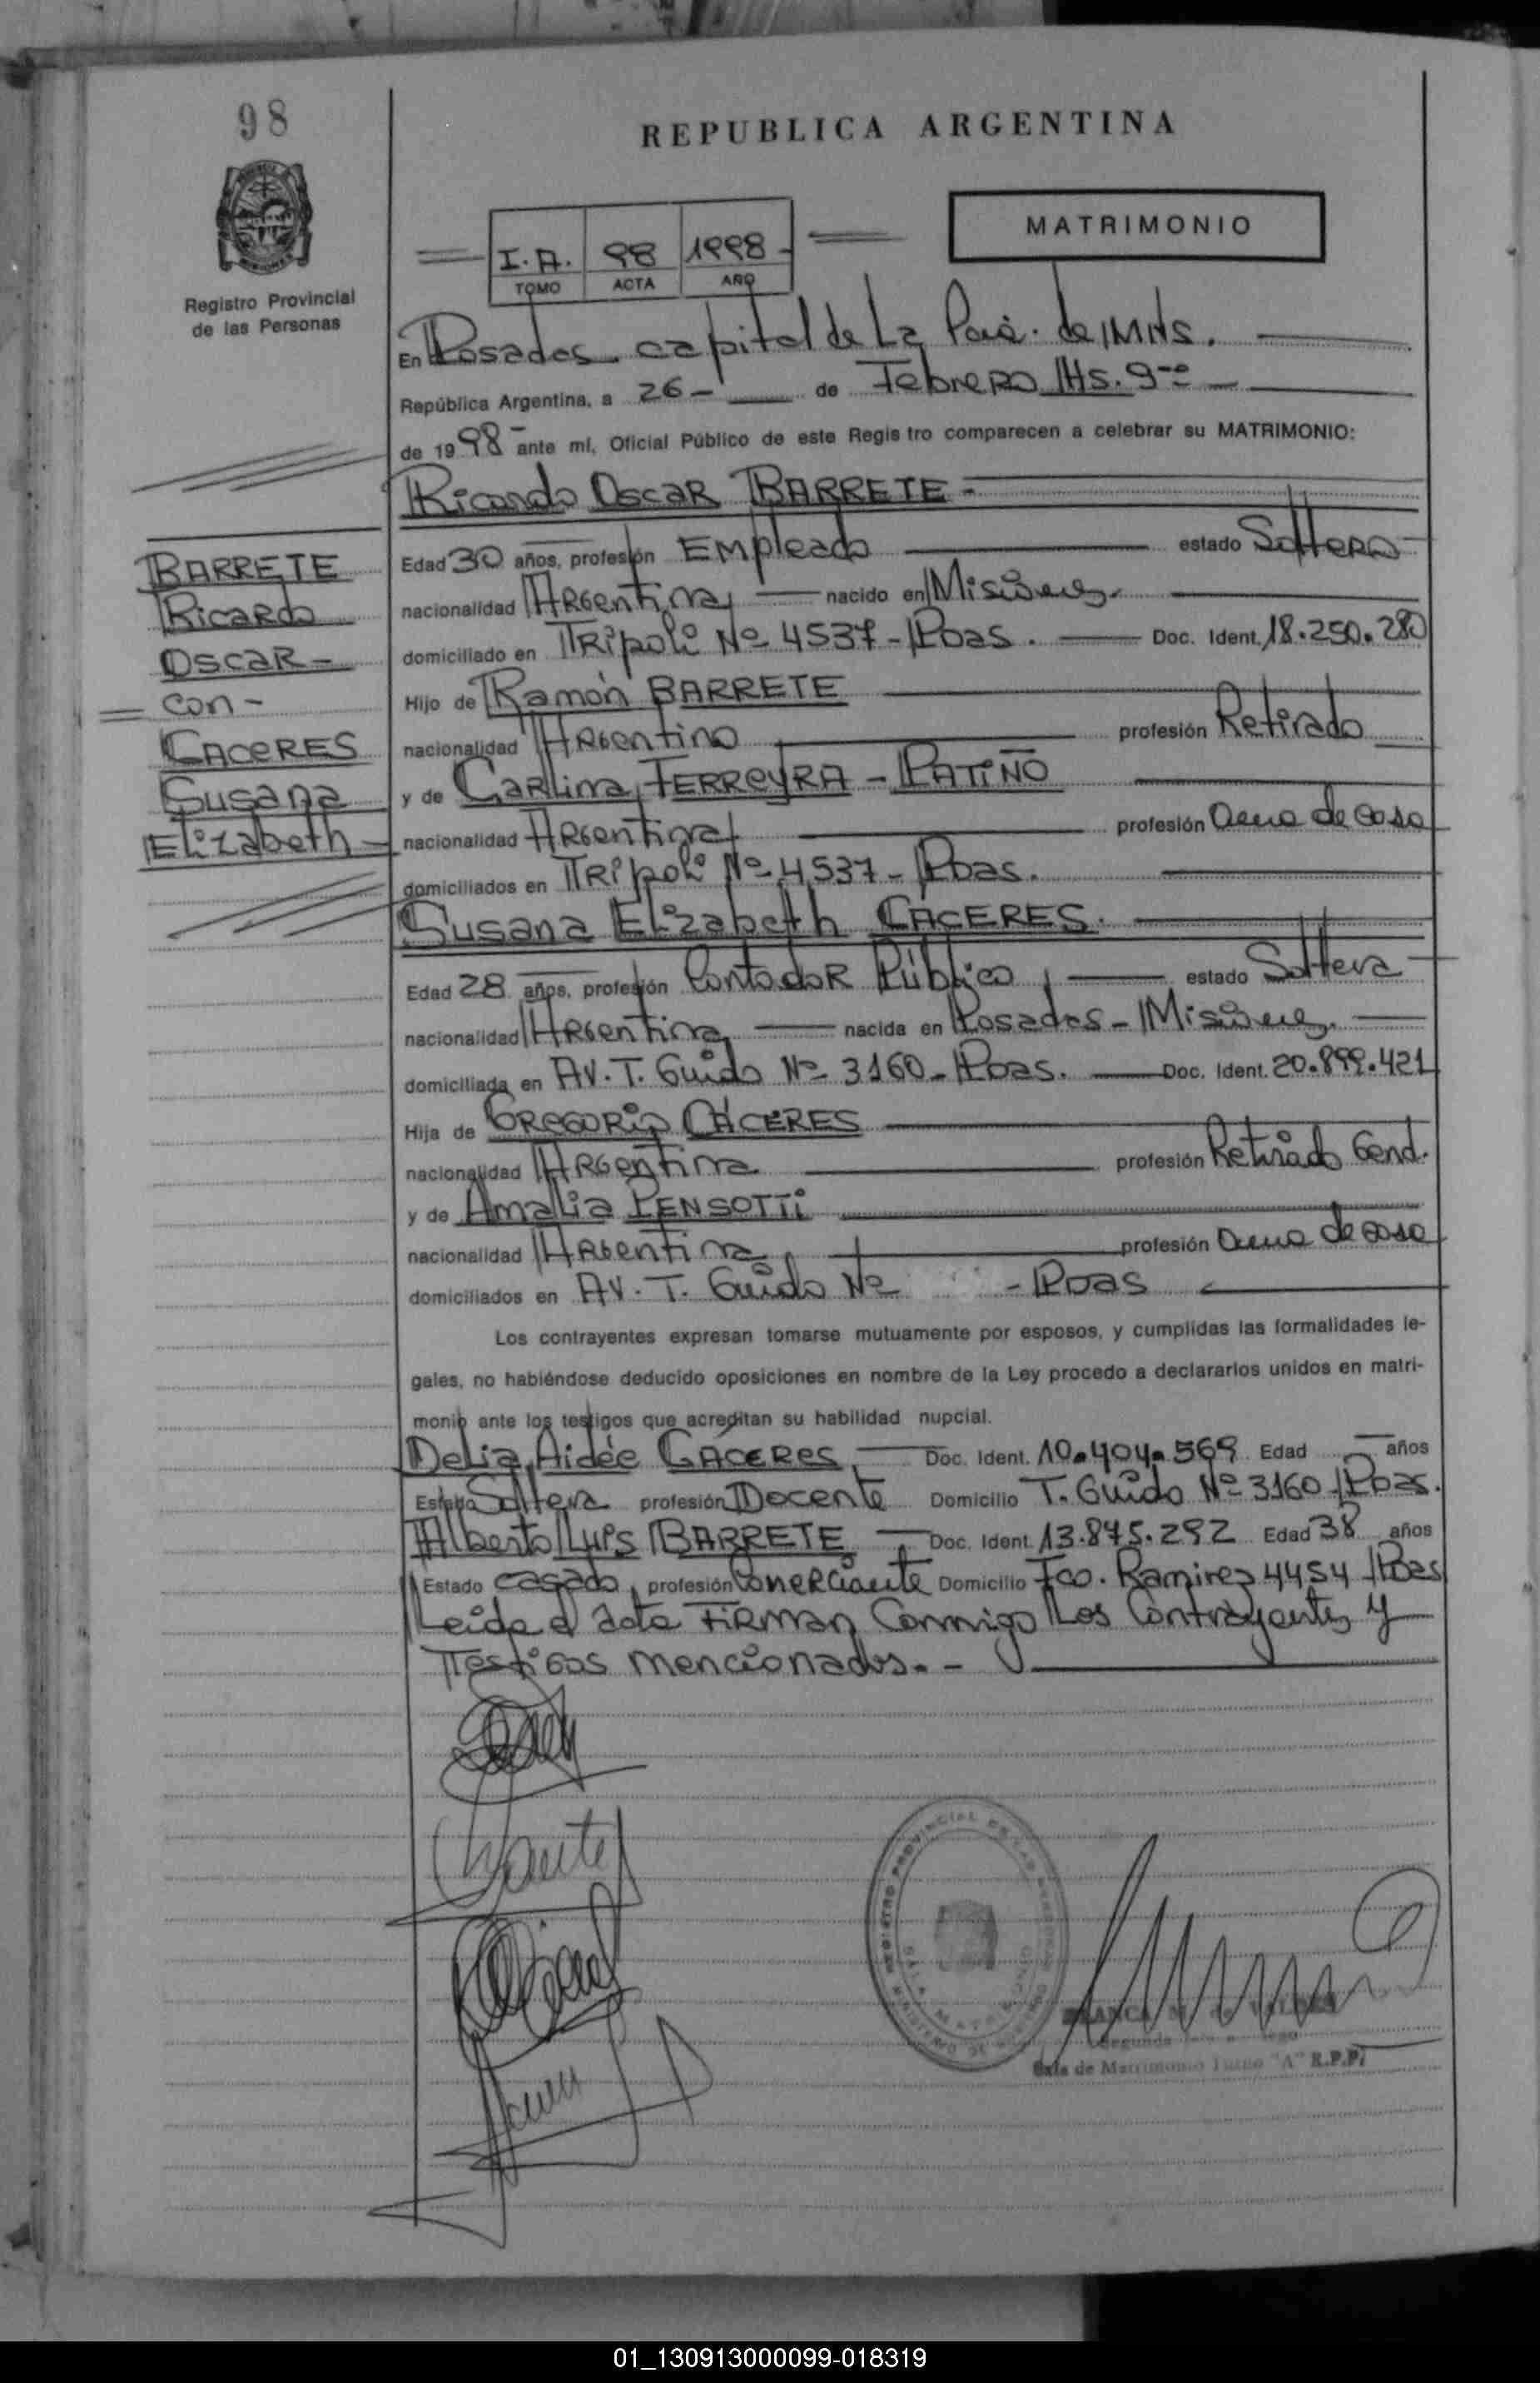 98
REPUBLICA ARGENTINA
MATRIMONIO
I.A. 98 1998-
TOMO ACTA AÑO
Registro Provincial
de las Personas
En Posadas, capital de La Pcia. de Mnes.
República Argentina, a 26- de Febrero Hs. 9-
de 1998- ante mí, Oficial Público de este Registro comparecen a celebrar su MATRIMONIO:
Ricardo Oscar BARRETE-
BARRETE
Ricardo
Oscar-
con-
CACERES
Susana
Elizabeth-
Edad 30 años, profesión Empleado estado Soltero
nacionalidad Argentina, nacido en Misiones.
domiciliado en Tripoli Nº 4537-Pdas. Doc. Ident. 18.250.280
Hijo de Ramón BARRETE
nacionalidad Argentino profesión Retirado
y de Carlina FERREYRA - PATIÑO
nacionalidad Argentina profesión Ama de casa
domiciliados en Tripoli Nº 4537-Pdas.
Susana Elizabeth CÁCERES.
Edad 28 años, profesión Contador Público, estado Soltera
nacionalidad Argentina, nacida en Posadas-Misiones.
domiciliada en Av. T. Guido Nº 3160-Pdas. Doc. Ident. 20.899.421
Hija de GREGORIO CÁCERES
nacionalidad Argentina profesión Retirado Gend.
y de Amalia PENSOTTI
nacionalidad Argentina profesión Ama de casa
domiciliados en Av. T. Guido Nº -Pdas
Los contrayentes expresan tomarse mutuamente por esposos, y cumplidas las formalidades le-
gales, no habiéndose deducido oposiciones en nombre de la Ley procedo a declararlos unidos en matri-
monio ante los testigos que acreditan su habilidad nupcial.
Delia Aidée CÁCERES, Doc. Ident. 10.404.569 Edad años
Estado Soltera profesión Docente Domicilio T. Guido Nº 3160-Pdas.
Alberto Luis BARRETE Doc. Ident. 13.875.292 Edad 38 años
Estado casado, profesión Comerciante Domicilio Fco. Ramirez 4454-Pdas
Leida el acta Firman Conmigo Los Contrayentes y
Testigos mencionados.-
REGISTRO PROVINCIAL DE LAS PERSONAS
Sala de Matrimonio Turno "A" R.P.P.
01_130913000099-018319